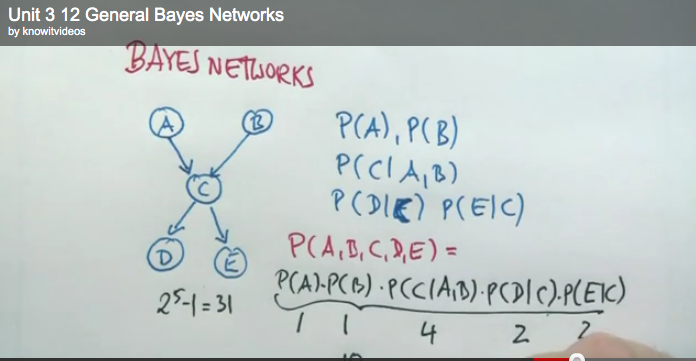 Unit 3 12 General Bayes Networks
by knowitvideos
BAYES NETWORKS
A B
P(A), P(B)
P(C|A,B)
C
P(D|C) P(E|C)
D E
P(A,B,C,D,E) =
P(A)·P(B)·P(C|A,B)·P(D|C)·P(E|C)
2⁵-1=31
1 1 4 2 2